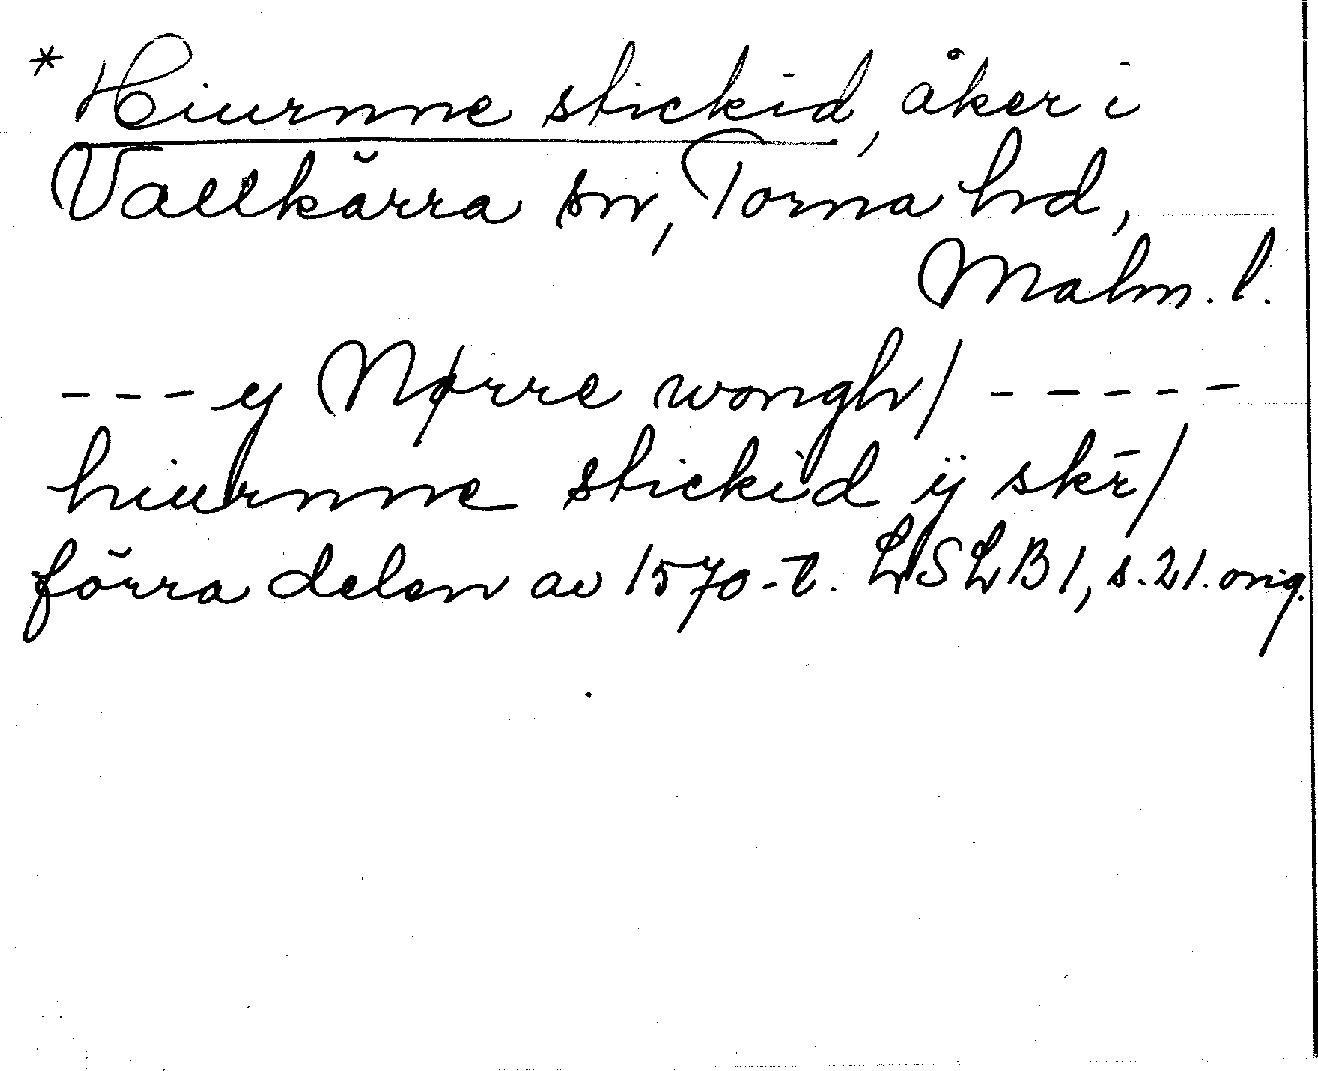 * Hiurnne stickid, åker i
Vallkärra sn, Torna hd,
Malm. l.
- - - y Nørre wongh/ - - - - -
hiurnne stickid ij skr̄/
förra delen av 1570-t. LSLB 1, s. 21. orig.